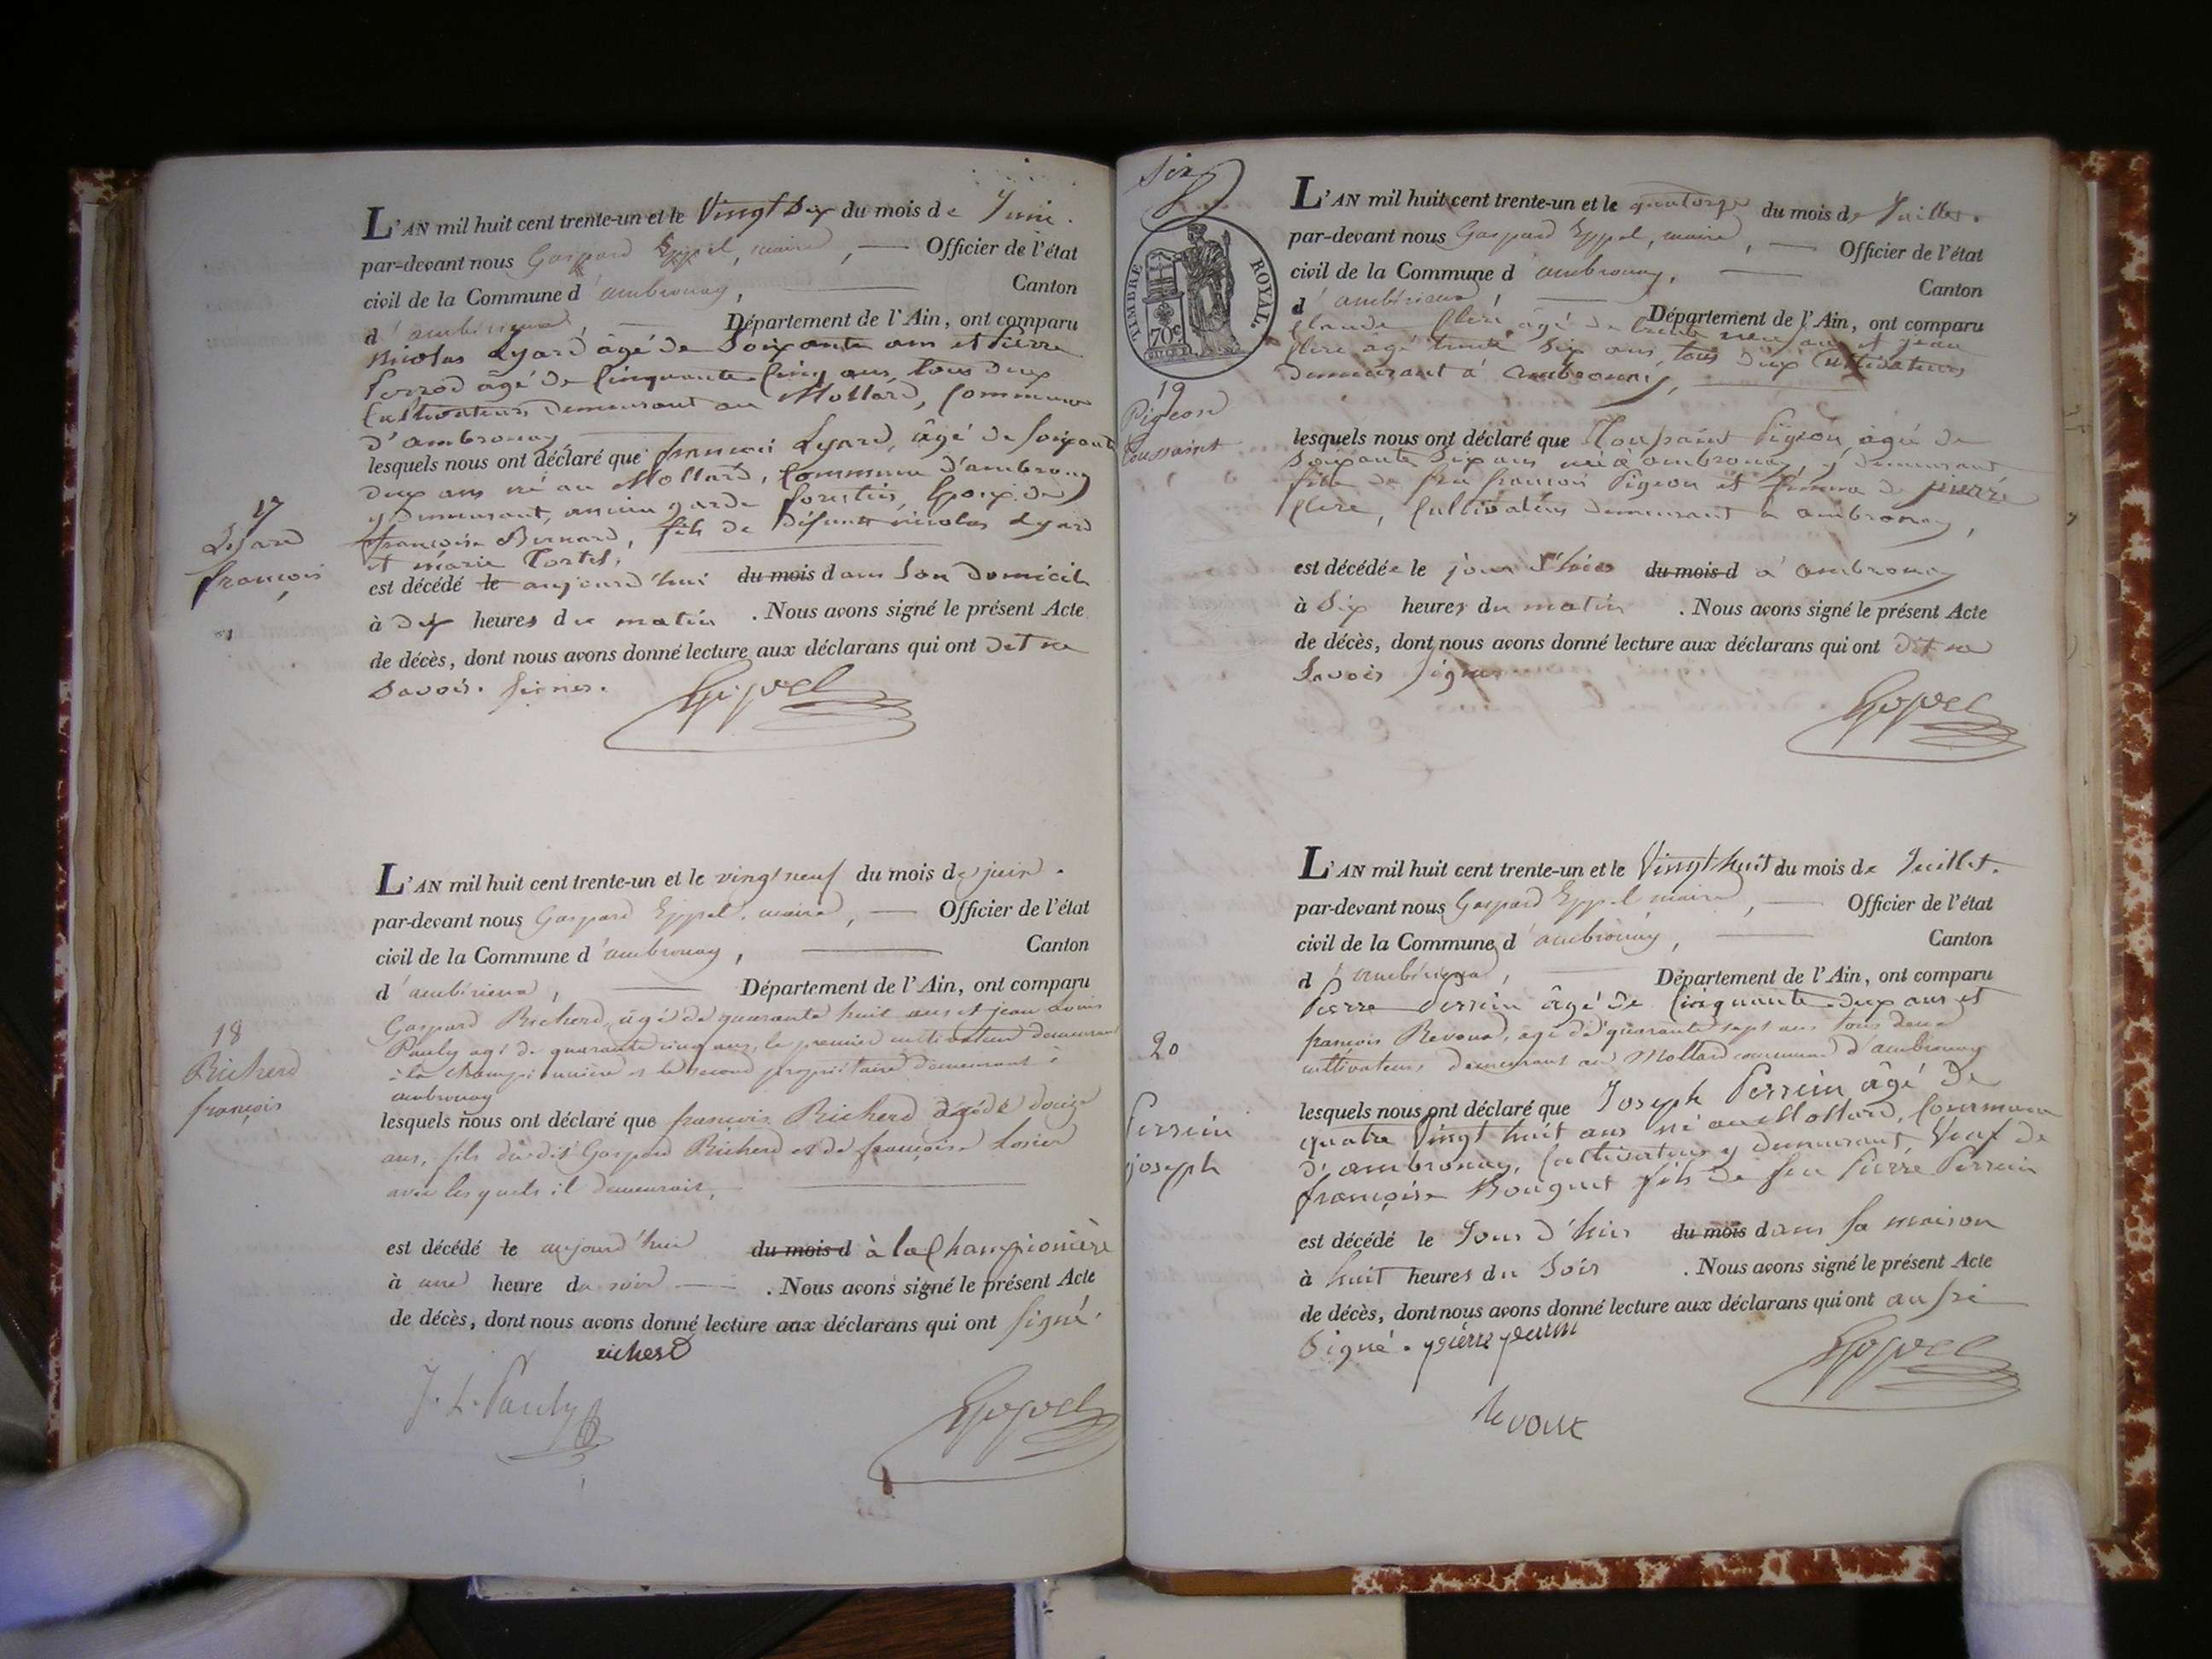 L'AN mil huit cent trente-un et le Vingt Six du mois de Juin.
par-devant nous Gaspard Eppel, maire, Officier de l'état
civil de la Commune d'ambronay, Canton
d'ambérieux, Département de l'Ain, ont comparu
Nicolas Lyard âgé de Soixante ans et Pierre
Perrod âgé de Cinquante Cinq ans, tous deux
Cultivateurs demeurant au Mollard, Commune
d'ambronay
lesquels nous ont déclaré que françois Lyard, âgé de Soixante
deux ans né au Mollard, Commune d'ambronay
y demeurant, ancien garde forestier, Epoux de
françoise Bernard, fils de défunt nicolas Lyard
et marie Tortel,
17
Lyard
françois
est décédé le aujourd'hui du mois dans Son Domicile
à dix heures du matin. Nous avons signé le présent Acte
de décès, dont nous avons donné lecture aux déclarans qui ont dit ne
Savoir Signer.
Eppel
L'AN mil huit cent trente-un et le vingt neuf du mois de juin.
par-devant nous Gaspard Eppel, maire, Officier de l'état
civil de la Commune d'ambronay, Canton
d'ambérieux, Département de l'Ain, ont comparu
Gaspard Richerd, âgé de quarante huit ans et jean Louis
Pauly agé de quarante cinq ans, le premier cultivateur demeurant
à la Championnière et le second propriétaire demeurant à
ambronay
18
Richerd
françois
lesquels nous ont déclaré que françois Richerd âgé de douze
ans, fils du dit Gaspard Richerd et de françoise
avec lesquels il demeurait,
est décédé le aujourd'hui du mois d à la Championière
à une heure du soir. Nous avons signé le présent Acte
de décès, dont nous avons donné lecture aux déclarans qui ont signé.
richerd
J. L. Pauly
Eppel
Six
TIMBRE ROYAL
70c
L'AN mil huit cent trente-un et le quatorze du mois de Juillet.
par-devant nous Gaspard Eppel, maire, Officier de l'état
civil de la Commune d'ambronay, Canton
d'ambérieux, Département de l'Ain, ont comparu
Claude flere âgé de trente neuf ans et jean
flere agé trente Six ans, tous deux Cultivateurs
demeurant à ambronay,
19
Pigeon
Toussaint
lesquels nous ont déclaré que Toussaint Pigeon âgée de
Soixante Six ans née à ambronay, y demeurant
fille de feu francois Pigeon et femme de pierre
flere, Cultivateur demeurant a ambronay,
est décédée le jour d'hier du mois d à ambronay
à Six heures du matin. Nous avons signé le présent Acte
de décès, dont nous avons donné lecture aux déclarans qui ont dit ne
Savoir Signer
Eppel
L'AN mil huit cent trente-un et le Vingt huit du mois de Juillet.
par-devant nous Gaspard Eppel maire, Officier de l'état
civil de la Commune d'ambronay, Canton
d'ambérieux, Département de l'Ain, ont comparu
Pierre Perrin âgé de Cinquante deux ans et
françois Revoux, agé de quarante sept ans tous deux
cultivateurs demeurant au Mollard commune d'ambronay
20
Perrin
joseph
lesquels nous ont déclaré que Joseph Perrin âgé de
quatre Vingt huit ans né au Mollard, Commune
d'ambronay, Cultivateur y demeurant, Veuf de
françoise Bouquet fils de feu Pierre Perrin
est décédé le Jour d'hier du mois dans sa maison
à huit heures du Soir. Nous avons signé le présent Acte
de décès, dont nous avons donné lecture aux déclarans qui ont aussi
Signé. pierre perrin
Eppel